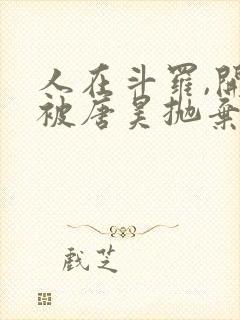 人在斗罗,開
被唐昊抛棄
戲芝